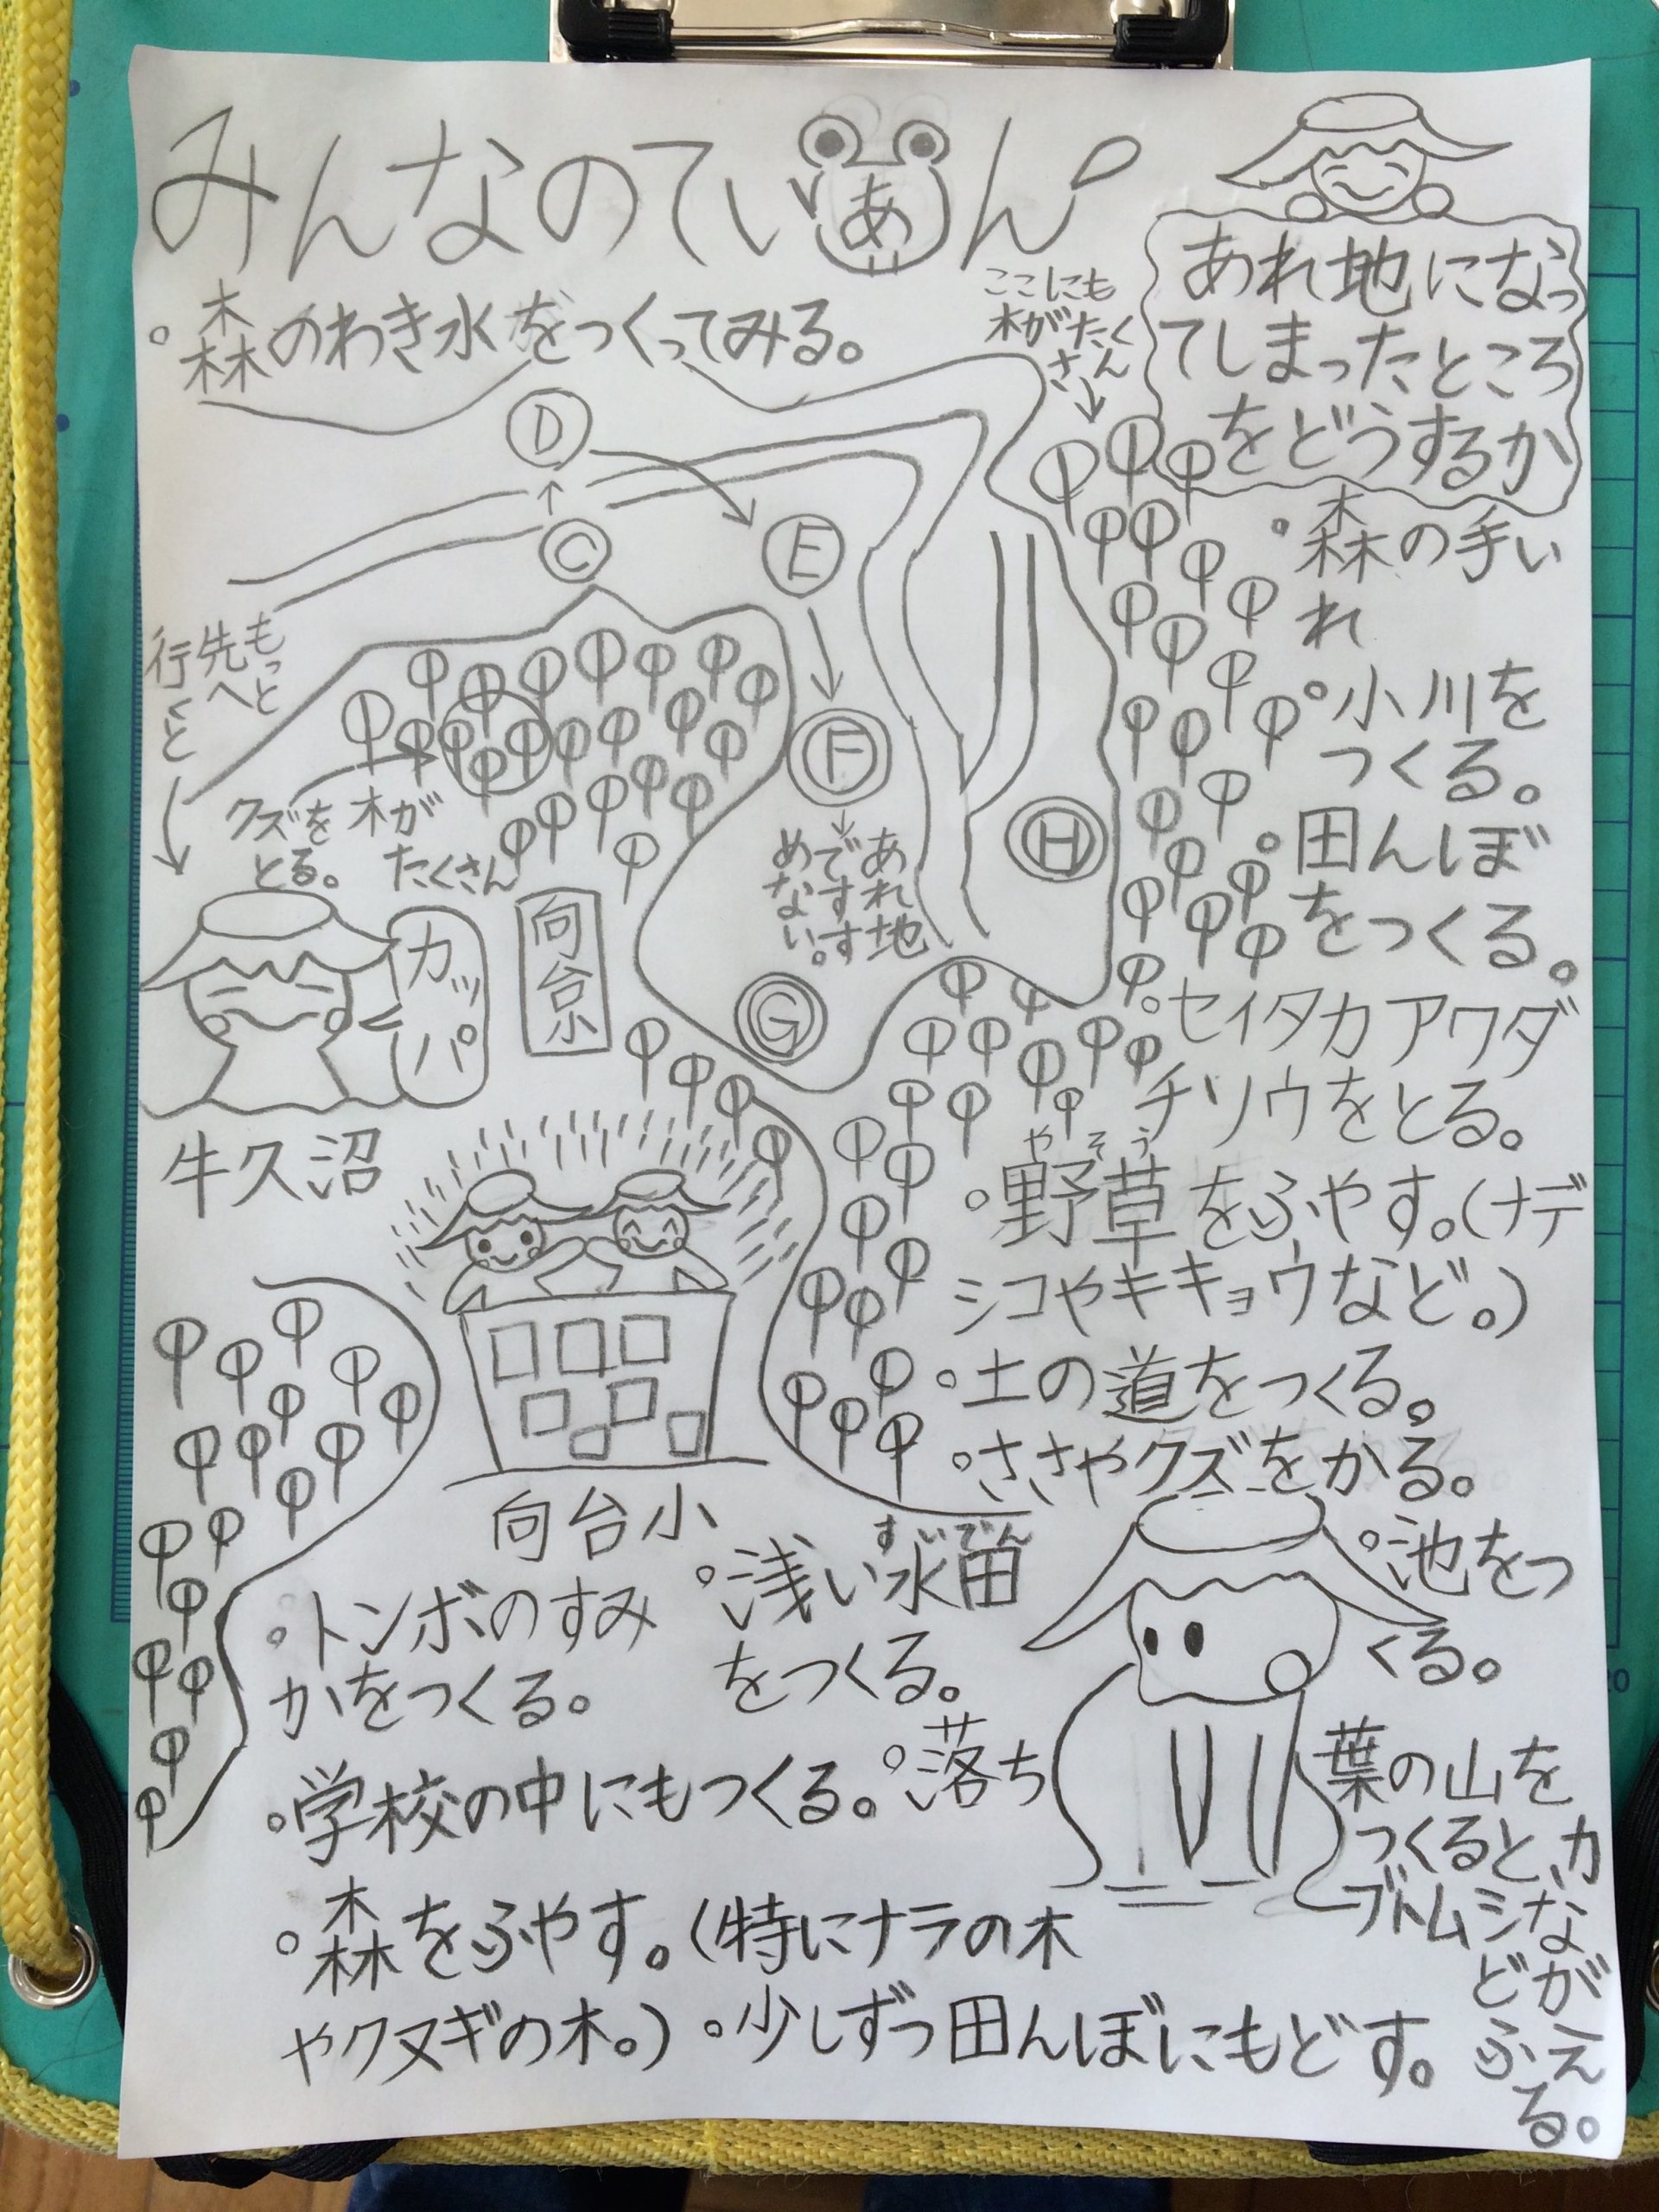 みんなのていあん
あれ地になっ
てしまったところ
をどうするか
。森のわき水をつくってみる。
ここにも
木がたく
さん
D
C
E
F
H
G
もっと
先へ
行くと
クズを
とる。
木が
たくさん
あれ地
ですす
めない。
向台小
カッパ
牛久沼
向台小
。森の手い
れ
。小川を
つくる。
。田んぼ
をつくる。
。セイタカアワダ
チソウをとる。
やそう
。野草をふやす。(ナデ
シコやキキョウなど。)
。土の道をつくる。
。ささやクズをかる。
。池をつ
くる。
すいでん
。浅い水田
をつくる。
。トンボのすみ
かをつくる。
。学校の中にもつくる。
。落ち
葉の山を
つくると、カ
ブトムシな
どが
ふえ
る。
。森をふやす。(特にナラの木
やクヌギの木。)
。少しずつ田んぼにもどす。